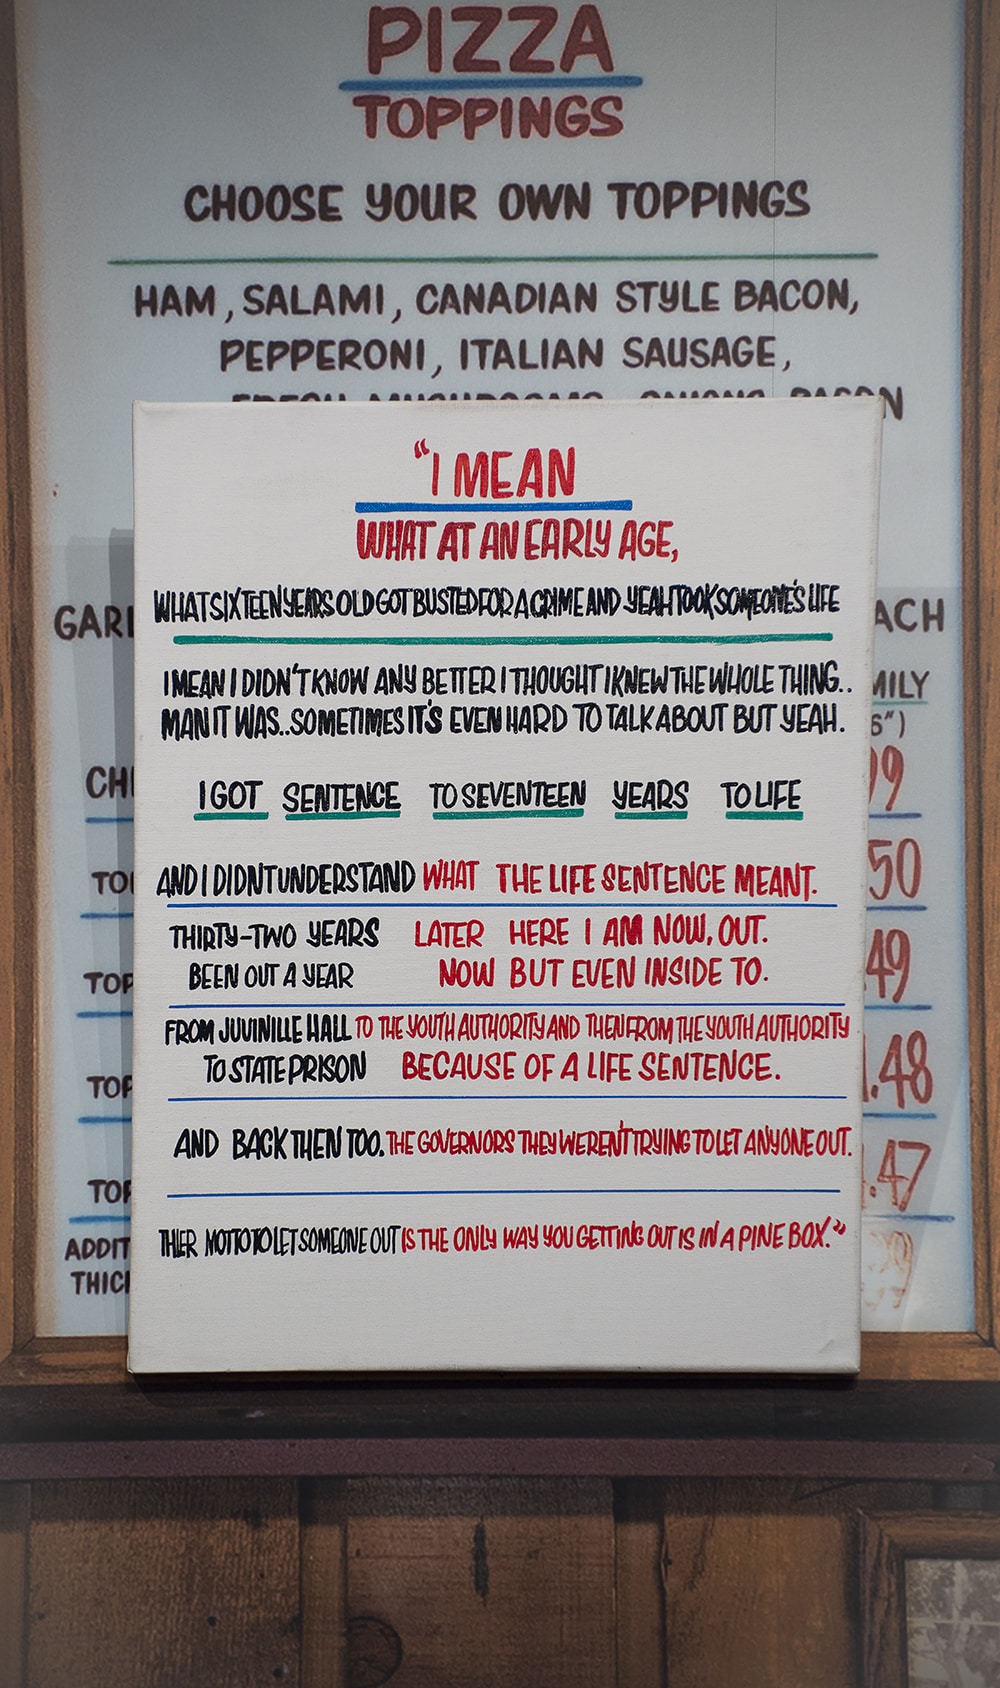 PIZZA
TOPPINGS
CHOOSE YOUR OWN TOPPINGS
HAM, SALAMI, CANADIAN STYLE BACON,
PEPPERONI, ITALIAN SAUSAGE,
FRESH MUSHROOMS, ONIONS, BACON
"I MEAN
WHAT AT AN EARLY AGE,
WHAT SIXTEEN YEARS OLD GOT BUSTED FOR A CRIME AND YEAH TOOK SOMEONE'S LIFE
I MEAN I DIDN'T KNOW ANY BETTER I THOUGHT I KNEW THE WHOLE THING..
MAN IT WAS..SOMETIMES IT'S EVEN HARD TO TALK ABOUT BUT YEAH.
I GOT SENTENCE TO SEVENTEEN YEARS TO LIFE
AND I DIDNT UNDERSTAND WHAT THE LIFE SENTENCE MEANT.
THIRTY-TWO YEARS LATER HERE I AM NOW, OUT.
BEEN OUT A YEAR NOW BUT EVEN INSIDE TO.
FROM JUVINILLE HALL TO THE YOUTH AUTHORITY AND THEN FROM THE YOUTH AUTHORITY
TO STATE PRISON BECAUSE OF A LIFE SENTENCE.
AND BACK THEN TOO. THE GOVERNORS THEY WEREN'T TRYING TO LET ANYONE OUT.
THIER MOTTO TO LET SOMEONE OUT IS THE ONLY WAY YOU GETTING OUT IS IN A PINE BOX."
GARL
ACH
MILY
6")
CH
99
TO
.50
TOP
.49
TOP
.48
TOP
.47
ADDIT
THIC